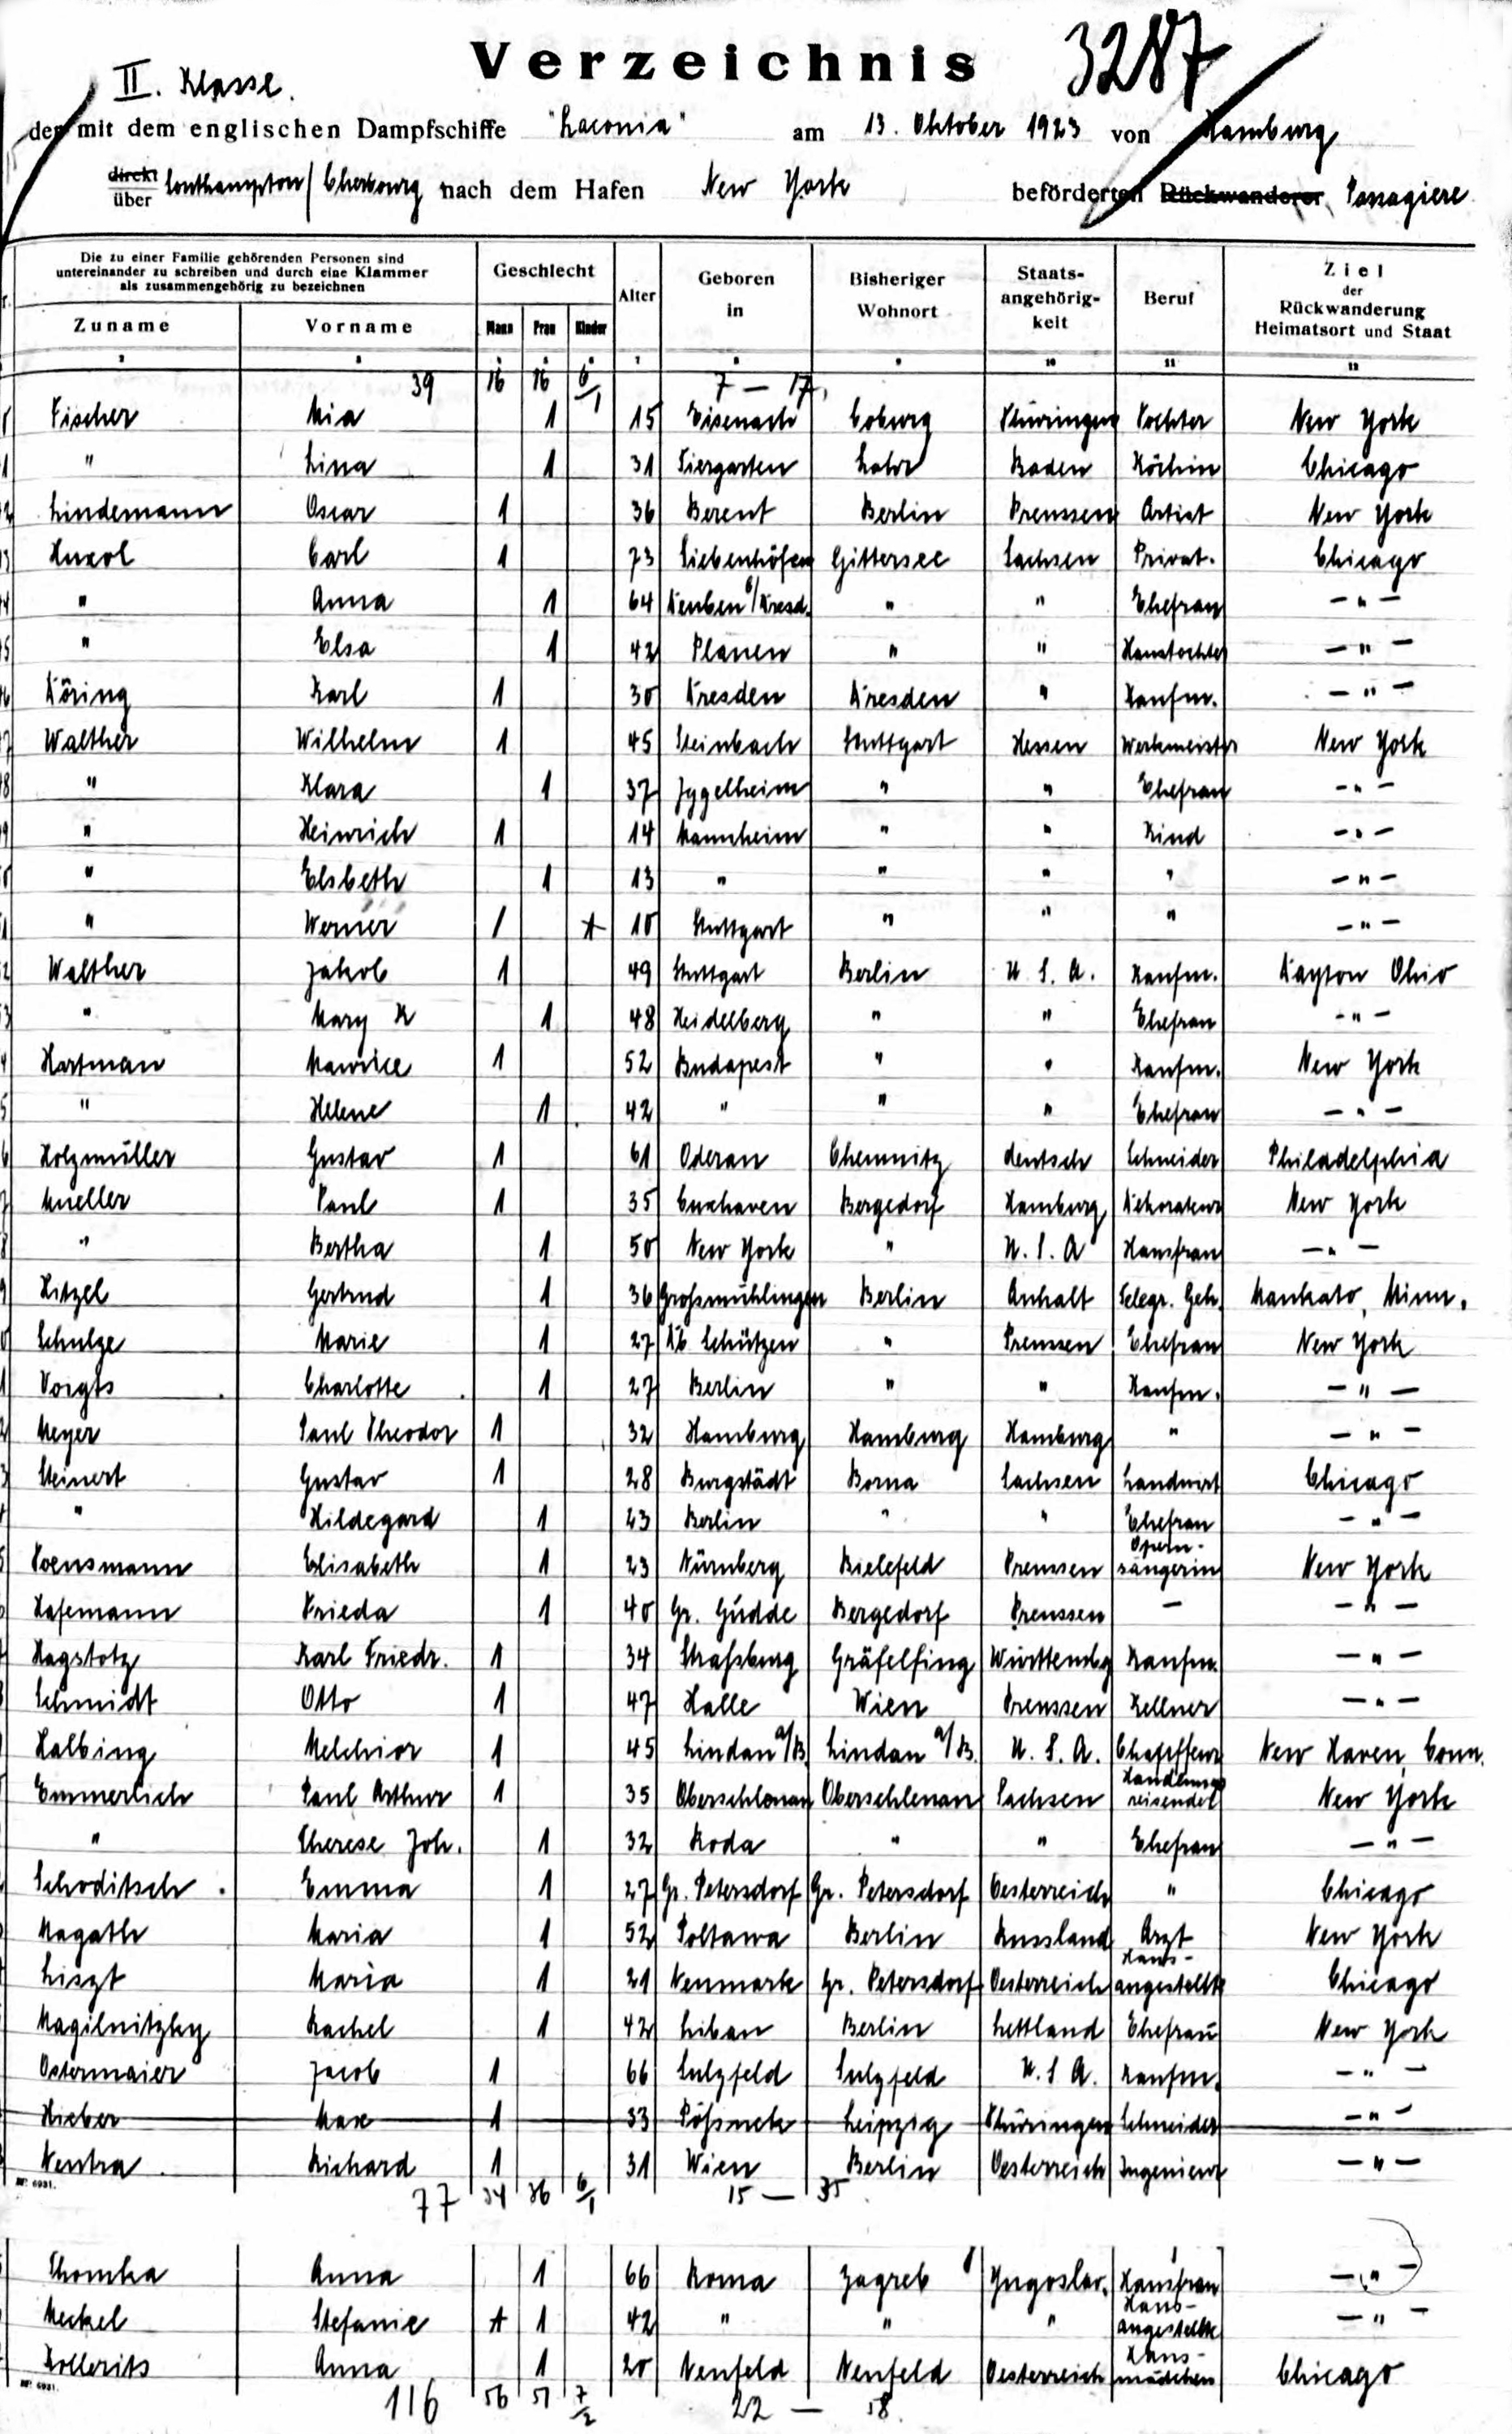 Verzeichnis
3287
II. Klasse.
der mit dem englischen Dampfschiffe "Laconia" am 13. Oktober 1923 von Hamburg
direkt
über Southampton/Cherbourg nach dem Hafen New York beförderten Rückwanderer Passagiere
Die zu einer Familie gehörenden Personen sind
untereinander zu schreiben und durch eine Klammer
als zusammengehörig zu bezeichnen
Geschlecht Alter Geboren in Bisheriger Wohnort Staats-angehörig-keit Beruf Ziel der Rückwanderung Heimatsort und Staat
Zuname Vorname Mann Frau Kinder
7 8 9 10 11 12
39 16 16 6/1 7 — 17
Fischer Mia 1 15 Eisenach Coburg Thüringen Tochter New York
" Lina 1 31 Tiergarten Lahr Baden Köchin Chicago
Lindemann Oscar 1 36 Berent Berlin Preussen Artist New York
Carl 1 73 Siebenhöfen Gittersee Sachsen Privat. Chicago
" Anna 1 64 Deuben b/Dresd. " " Ehefrau — " —
" Elsa 1 42 Plauen " " Haustochter — " —
Döring Karl 1 30 Dresden Dresden " Kaufm. — " —
Walther Wilhelm 1 45 Steinbach Stuttgart Hessen Werkmeister New York
" Klara 1 37 Iggelheim " " Ehefrau — " —
" Heinrich 1 14 Mannheim " " Kind — " —
" Elsbeth 1 13 " " " " — " —
" Werner 1 1 10 Stuttgart " " " — " —
Walther Jakob 1 49 Stuttgart Berlin U. S. A. Kaufm. Dayton Ohio
" Mary K 1 48 Heidelberg " " Ehefrau — " —
Hartman Maurice 1 52 Budapest " " Kaufm. New York
" Helene 1 42 " " " Ehefrau — " —
Holzmüller Gustav 1 61 Oderan Chemnitz deutsch Schneider Philadelphia
Mueller Paul 1 35 Cuxhaven Bergedorf Hamburg Dekorateur New York
" Bertha 1 50 New York " U. S. A Hausfrau — " —
Hitzel Gertrud 1 36 Grossmühlingen Berlin Anhalt Telegr. Geh. Mankato, Minn.
Schulze Marie 1 27 Schützen " Preussen Ehefrau New York
Voigts Charlotte 1 27 Berlin " " Kaufm. — " —
Meyer Paul Theodor 1 32 Hamburg Hamburg Hamburg " — " —
Steinert Gustav 1 28 Burgstädt Borna Sachsen Landwirt Chicago
" Hildegard 1 23 Berlin " " Ehefrau — " —
Poensmann Elisabeth 1 23 Nürnberg Bielefeld Preussen Opern-sängerin New York
Hasemann Frieda 1 40 Gr. Gudde Bergedorf Preussen — — " —
Hagstotz Karl Friedr. 1 34 Straßburg Gräfelfing Württembg Kaufm. — " —
Schmidt Otto 1 47 Halle Wien Preussen Kellner — " —
Halbing Melchior 1 45 Lindau a/B. Lindau a/B. U. S. A. Chaffeur New Haven, Conn.
Emmerlich Paul Arthur 1 35 Oberschlenan Sachsen Handlungsreisender New York
" Therese Joh. 1 32 Roda " " Ehefrau — " —
Schoditsch Emma 1 27 Gr. Petersdorf Gr. Petersdorf Oesterreich " Chicago
Magath Maria 1 52 Poltawa Berlin Russland Arzt New York
Liszt Maria 1 21 Neumark Gr. Petersdorf Oesterreich Haus-angestellte Chicago
Magilnitzky Rachel 1 42 Libau Berlin Lettland Ehefrau New York
Ostermaier Jacob 1 66 Sulzfeld Sulzfeld U. S A. Kaufm. — " —
Hieber Max 1 33 Pößneck Leipzig Thüringen Schneider — " —
Neutra Richard 1 31 Wien Berlin Oesterreich Ingenieur — " —
77 34 36 6/1 15 — 35
Thomka Anna 1 66 Roma Zagreb Yugoslav. Hausfrau — " —
Meckel Stefanie 1 1 42 " " " Haus-angestellte — " —
Kollerits Anna 1 20 Neufeld Neufeld Oesterreich Haus-mädchen Chicago
116 56 51 7/2 22 — 58.